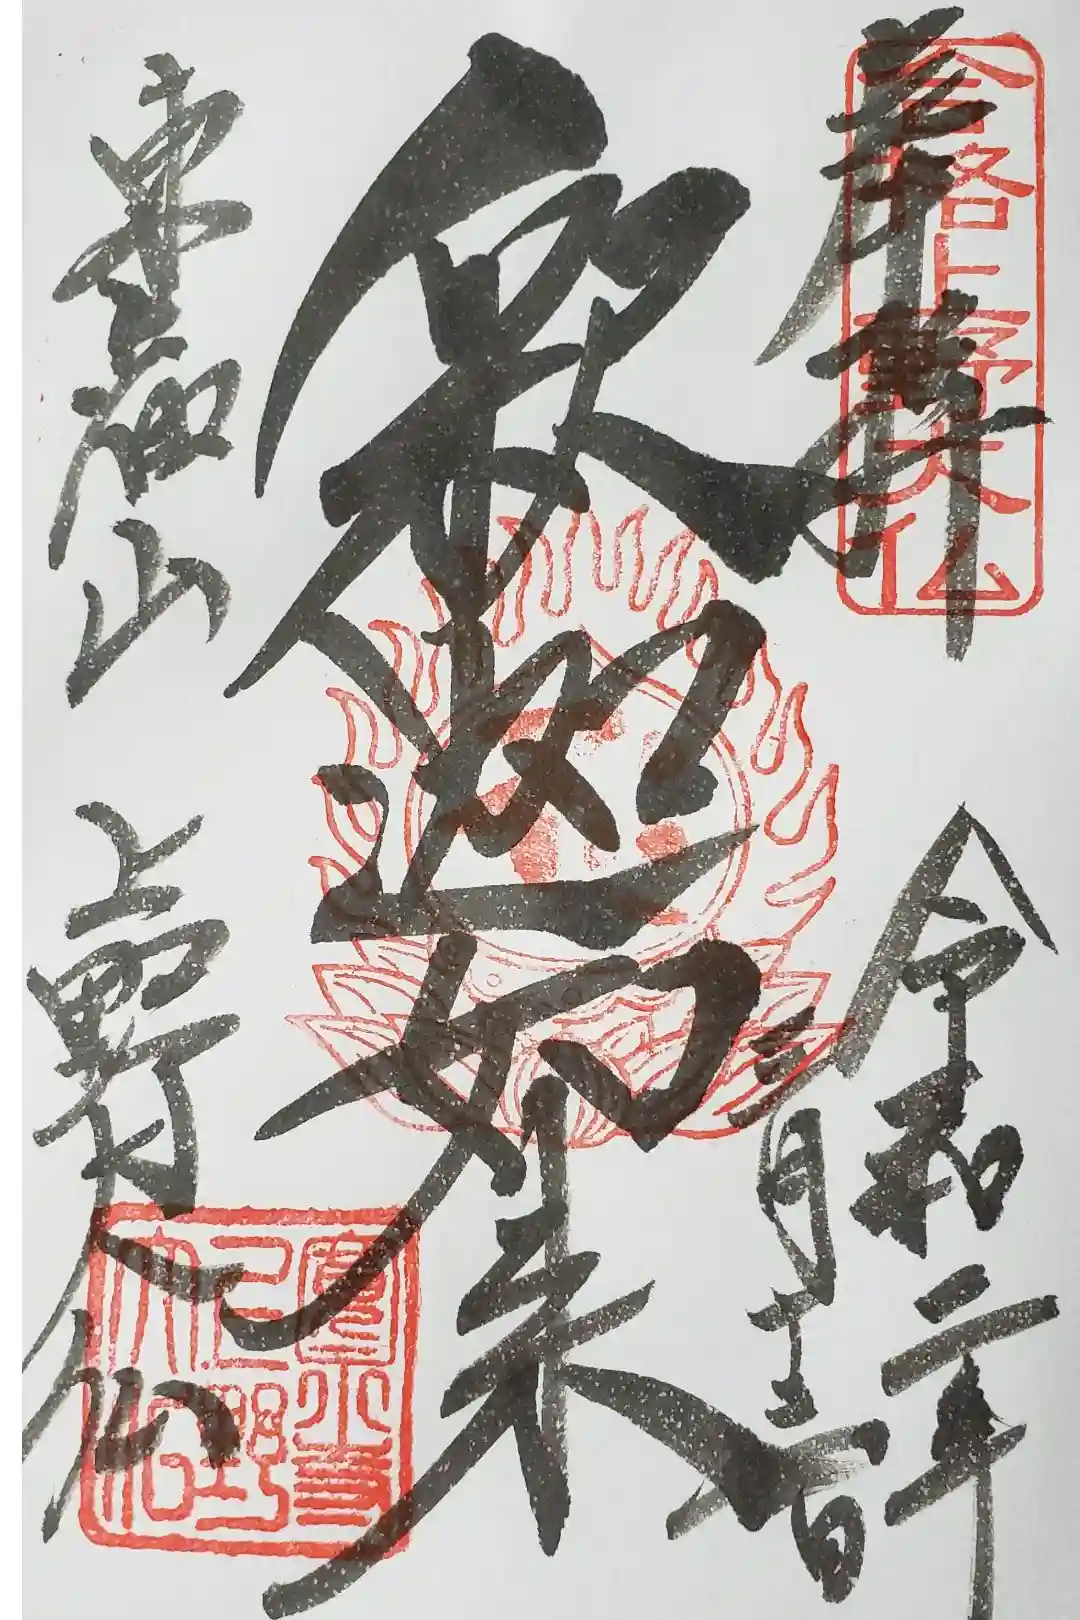 奉拝
合格上野大仏
令和二年
三月 日
釈迦如来
東叡山
上野大仏